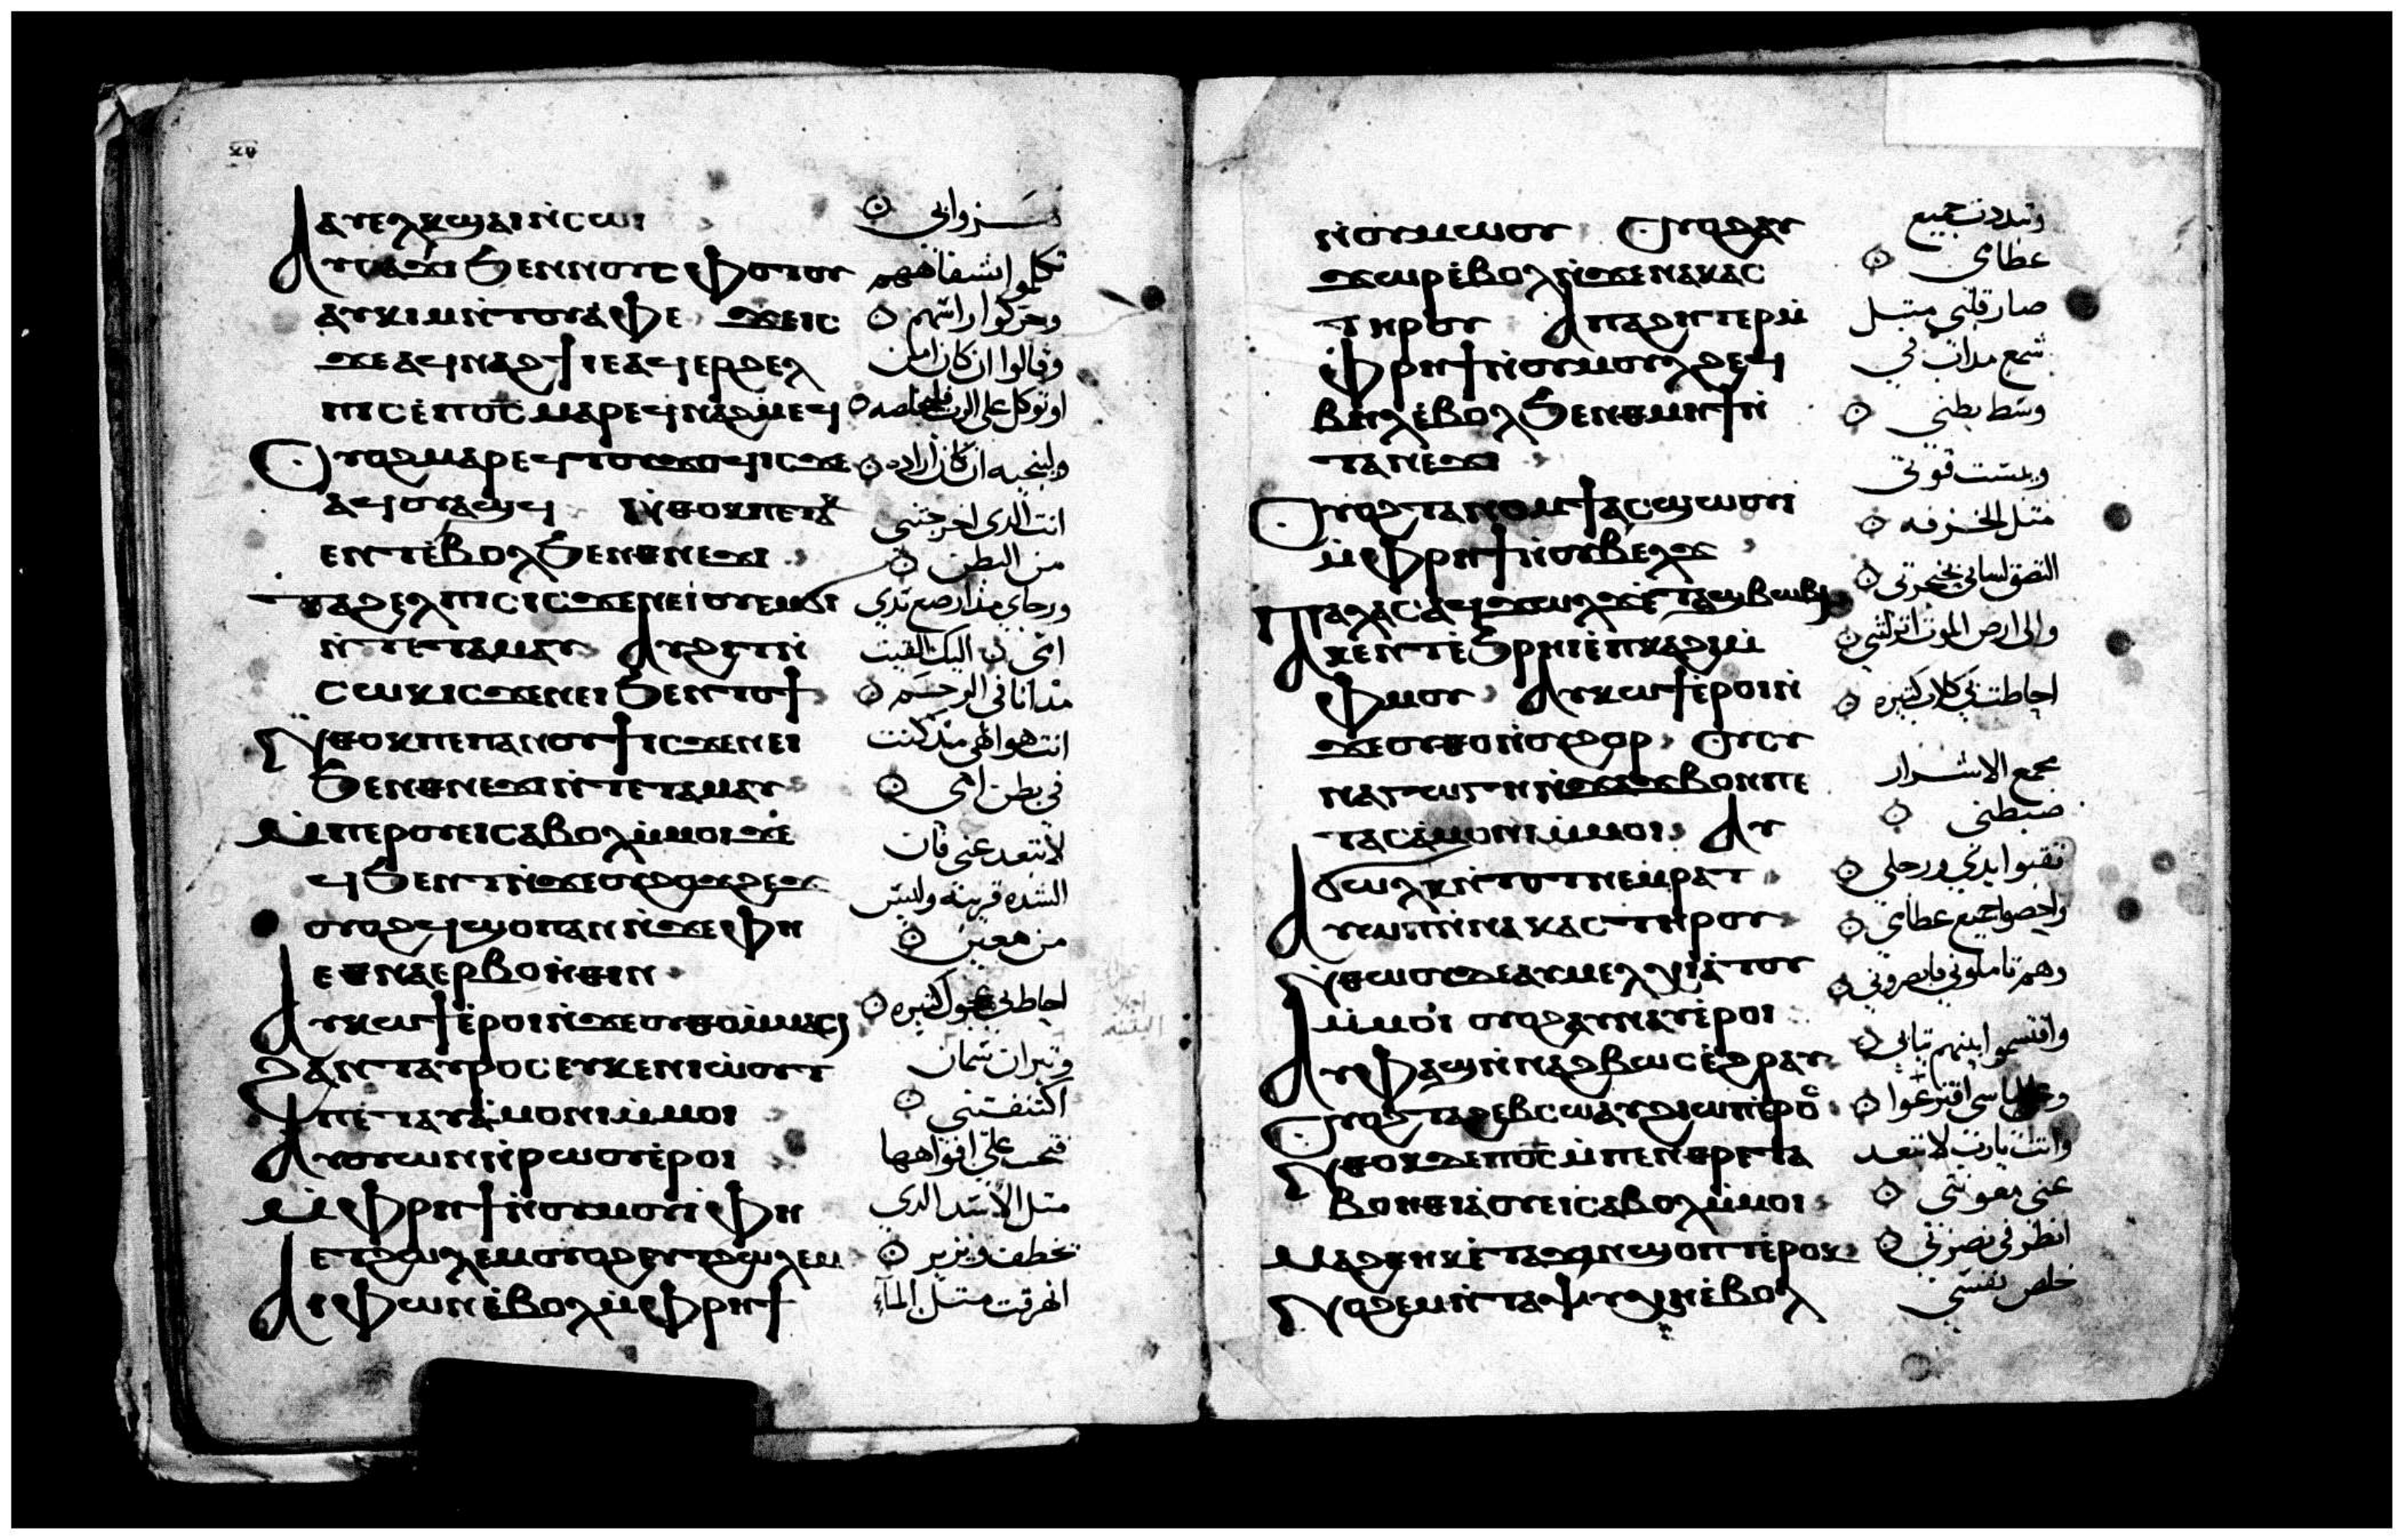 ⲁⲩⲉⲗⲕϣⲁⲓ ⲛ̀ⲥⲱⲓ
Ⲁⲩⲥⲁϫⲓ ϧⲉⲛⲛⲟⲩⲥⲫⲟⲧⲟⲩ
ⲁⲩⲕⲓⲙ ⲛ̀ⲧⲟⲩⲁ̀ⲫⲉ ϫⲉⲓⲥ
ϫⲉⲁϥⲛⲁϩϯ ⲓⲉ ⲁϥⲉⲣϩⲉⲗ
ⲡⲓⲥ ⲉ̀ⲡⲟ̅ⲥ̅ ⲙⲁⲣⲉϥⲛⲁϩⲙⲉϥ
Ⲟⲩⲟϩ ⲙⲁⲣⲉϥⲧⲟⲩϫⲟϥ ⲓⲥϫⲉ
ⲁϥⲟⲩⲁϣϥ Ⲛ̀ⲑⲟⲕ ⲡⲉⲧⲁⲕ
ⲉⲛⲧ ⲉ̀ⲃⲟⲗϧⲉⲛ ⲑⲛⲉϫⲓ
ⲧⲁϩⲉⲗⲡⲓⲥ ⲓⲥϫⲉⲛ ⲉⲓⲟⲩⲉⲙϭⲓ
ⲛ̀ⲧⲉⲧⲁⲙⲁⲩ Ⲁⲩϩⲓⲧ ⲛ̀
ⲥⲱⲕ ⲓⲥϫⲉⲛ ⲉⲓϧⲉⲛ ⲧⲟϯ
Ⲛ̀ⲑⲟⲕ ⲡⲉ ⲡⲁⲛⲟⲩϯ ⲓⲥϫⲉⲛ ⲉⲓ
ϧⲉⲛ ⲑⲛⲉϫⲓ ⲛ̀ⲧⲉⲧⲁⲙⲁⲩ
Ⲙ̀ⲡⲉⲣⲟⲩⲉⲓ ⲥⲁⲃⲟⲗ ⲙ̀ⲙⲟⲓ ϫⲉ
ϥϧⲉⲛⲧ ⲛ̀ϫⲉⲟⲩϩⲟϫϩⲉϫ
ⲟⲩⲟϩ ϥϣⲟⲡ ⲁⲛ ⲛ̀ϫⲉ ⲫⲏ
ⲉⲑⲛⲁⲉⲣⲃⲟⲏ̀ⲑⲓⲛ
Ⲁⲩⲕⲱϯ ⲉ̀ⲣⲟⲓ ⲛ̀ϫⲉ ⲟⲩⲑⲟ ⲙ̀ⲙⲁⲥⲓ
Ϩⲁⲛⲧⲁⲩⲣⲟⲥ ⲉⲩⲕⲉⲛⲓⲱ̀ⲟⲩⲧ
ⲡⲉⲧⲁⲩⲁ̀ⲙⲟⲛⲓ ⲙ̀ⲙⲟⲓ
Ⲁⲩⲟⲩⲱⲛ ⲛ̀ⲣⲱⲟⲩ ⲉ̀ⲣⲟⲓ
Ⲙ̀ⲫⲣⲏϯ ⲛ̀ⲟⲩⲙⲟⲩⲓ̀ ⲫⲏ
ⲉⲧϩⲱⲗⲉⲙ ⲟⲩⲟϩ ⲉⲧϩⲱⲗⲉⲙ
Ⲁⲓⲫⲱⲛ ⲉ̀ⲃⲟⲗ ⲙ̀ⲫⲣⲏϯ
تكلموا بشفاههم
وحركوا راسهم
وقالوا ان كان امن
او توكل على الرب فليخلصه
ولينجيه ان كان اراده
انت الدي اخرجتني
من البطن
ورجاي مذ ارضع تدي
امي
مذ انا في الرحم
انت هو الهي مذ كنت
في بطن امي
لا تبتعد عني فان
الشده قريبه وليس
من معين
احاط بي عجول كتيره
وتيران سمان
اكتنفتني
فتحت علي افواهها
متل الاسد الدي
يخطف ويزير
انهرقت متل المآء
ⲛ̀ⲟⲩⲙⲱⲟⲩ Ⲟⲩⲟϩ ⲁⲩ
ϫⲱⲣ ⲉ̀ⲃⲟⲗ ⲛ̀ϫⲉ ⲛⲁⲕⲁⲥ
ⲧⲏⲣⲟⲩ Ⲁ ⲡⲁϩⲏⲧ ⲉⲣ ⲙ̀
ⲫⲣⲏϯ ⲛ̀ⲟⲩⲙⲟⲩⲗϩ ⲉϥ
ⲃⲏⲗ ⲉ̀ⲃⲟⲗ ϧⲉⲛ ⲑⲙⲏϯ ⲛ̀
ⲧⲁⲛⲉϫⲓ
Ⲟⲩⲟϩ ⲧⲁⲛⲟⲙϯ ⲁⲥϣⲱⲟⲩⲓ
ⲙ̀ⲫⲣⲏϯ ⲛ̀ⲟⲩⲃⲉⲗϫ
Ⲡⲁⲗⲁⲥ ⲁϥϫⲱⲗϫ ⲉ̀ⲧⲁϣⲃⲱⲃⲓ
Ⲁⲕⲉⲛⲧ ⲉ̀ϧⲣⲏⲓ ⲉ̀ⲡⲕⲁϩⲓ ⲙ̀
ⲫⲙⲟⲩ Ⲁⲩⲕⲱϯ ⲉ̀ⲣⲟⲓ ⲛ̀
ϫⲉ ⲟⲩⲑⲟ ⲛ̀ⲟⲩϩⲟⲣ Ⲟⲩⲥⲩ
ⲛⲁⲩⲱⲅⲏ ⲛ̀ϫⲁϫⲃⲟⲛ ⲡⲉ
ⲧⲁⲥⲁ̀ⲙⲟⲛⲓ ⲙ̀ⲙⲟⲓ Ⲁⲩ
ϭⲱⲗⲕ ⲛ̀ⲧⲟⲧ ⲛⲉⲙ ⲣⲁⲧ
Ⲁⲩⲱⲡ ⲛ̀ⲛⲁⲕⲁⲥ ⲧⲏⲣⲟⲩ
Ⲛ̀ⲑⲱⲟⲩ ⲇⲉ ⲁⲩⲙⲉⲗⲛ̀ⲓⲁ̀ⲧⲟⲩ
ⲙ̀ⲙⲟⲓ ⲟⲩⲟϩ ⲁⲩⲛⲁⲩ ⲉ̀ⲣⲟⲓ
Ⲁⲩⲫⲱϣ ⲛ̀ⲛⲁϩⲃⲱⲥ ⲉ̀ϩⲣⲁⲩ
Ⲟⲩⲟϩ ⲧⲁϩⲉⲃⲥⲱ ⲁⲩϩⲓⲱⲡ ⲉ̀ⲣⲟⲥ
Ⲛ̀ⲑⲟⲕ ⲇⲉ ⲡⲟ̅ⲥ̅ ⲙ̀ⲡⲉⲛⲑⲣⲉ ⲧⲁ
ⲃⲟⲏ̀ⲑⲓⲁ ⲟⲩⲉⲓ ⲥⲁⲃⲟⲗ ⲙ̀ⲙⲟⲓ
Ⲙⲁϩⲑⲏⲕ ⲉ̀ⲧⲁϫⲓⲛϣⲟⲡⲧ ⲉ̀ⲣⲟⲕ
Ⲛⲟϩⲉⲙ ⲛ̀ⲧⲁⲯⲩⲭⲏ ⲉ̀ⲃⲟⲗ
وتبددت جميع
عظامي
صار قلبي متل
شمع مداب في
وسط بطني
ويبست قوتي
متل الخزفه
التصق لساني بحنجرتي
والى ارض الموت انزلتني
احاطت بي كلاب كتيره
مجمع الاشرار
ضبطني
تقبوا يدي ورجلي
واحصوا جميع عظامي
وهم تاملوني وابصروني
واقتسموا بينهم تيابي
وعلى لباسي اقترعوا
وانت يارب لا تبعد
عني معونتي
انظر في نصرتي
خلص نفسي